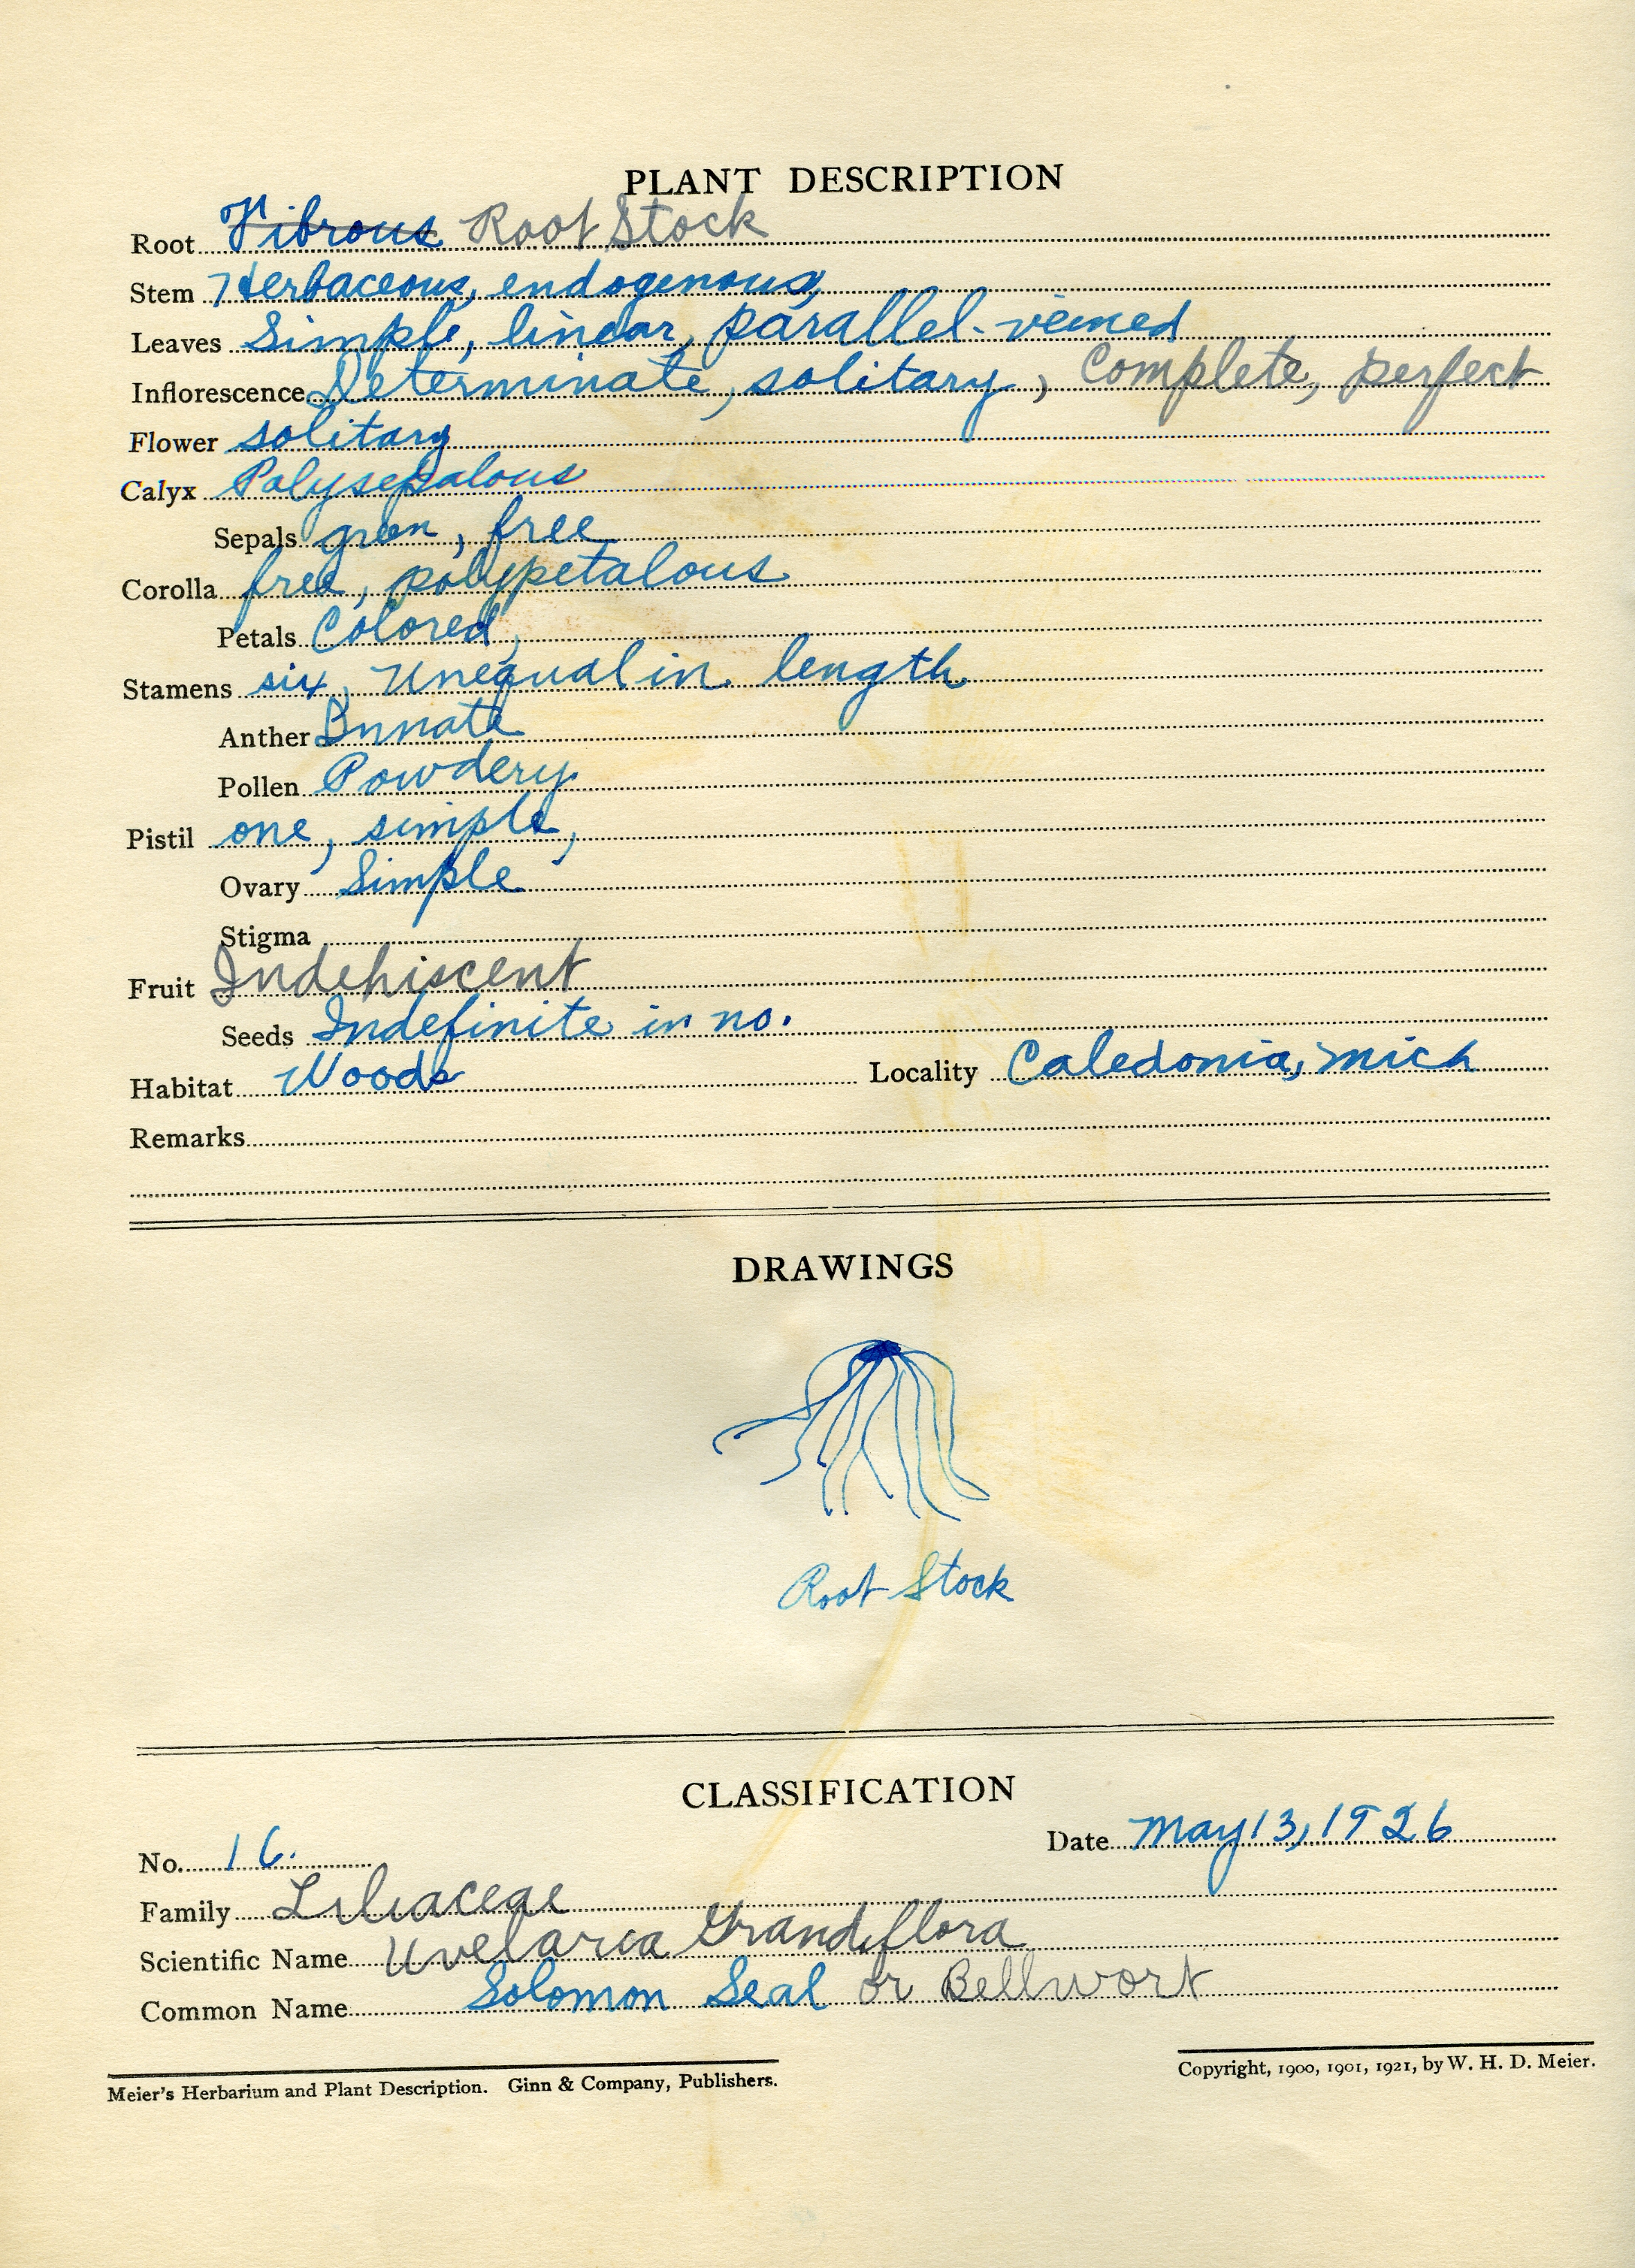 PLANT DESCRIPTION
Root Vibrous Root Stock
Stem Herbaceous, endogenous,
Leaves Simple, linear, parallel-veined
Inflorescence Determinate, solitary, Complete, perfect
Flower solitary
Calyx Polysepalous
Sepals green, free
Corolla free, polypetalous
Petals Colored,
Stamens six, Unequal in length
Anther Innate
Pollen Powdery
Pistil one, simple,
Ovary Simple
Stigma
Fruit Indehiscent
Seeds Indefinite in no.
Habitat Woods Locality Caledonia, Mich
Remarks
DRAWINGS
Root Stock
CLASSIFICATION
No. 16. Date May 13, 1926
Family Liliaceae
Scientific Name Uvelaria Grandiflora
Common Name Solomon Seal or Bellwort
Meier's Herbarium and Plant Description. Ginn & Company, Publishers. Copyright, 1900, 1901, 1921, by W. H. D. Meier.